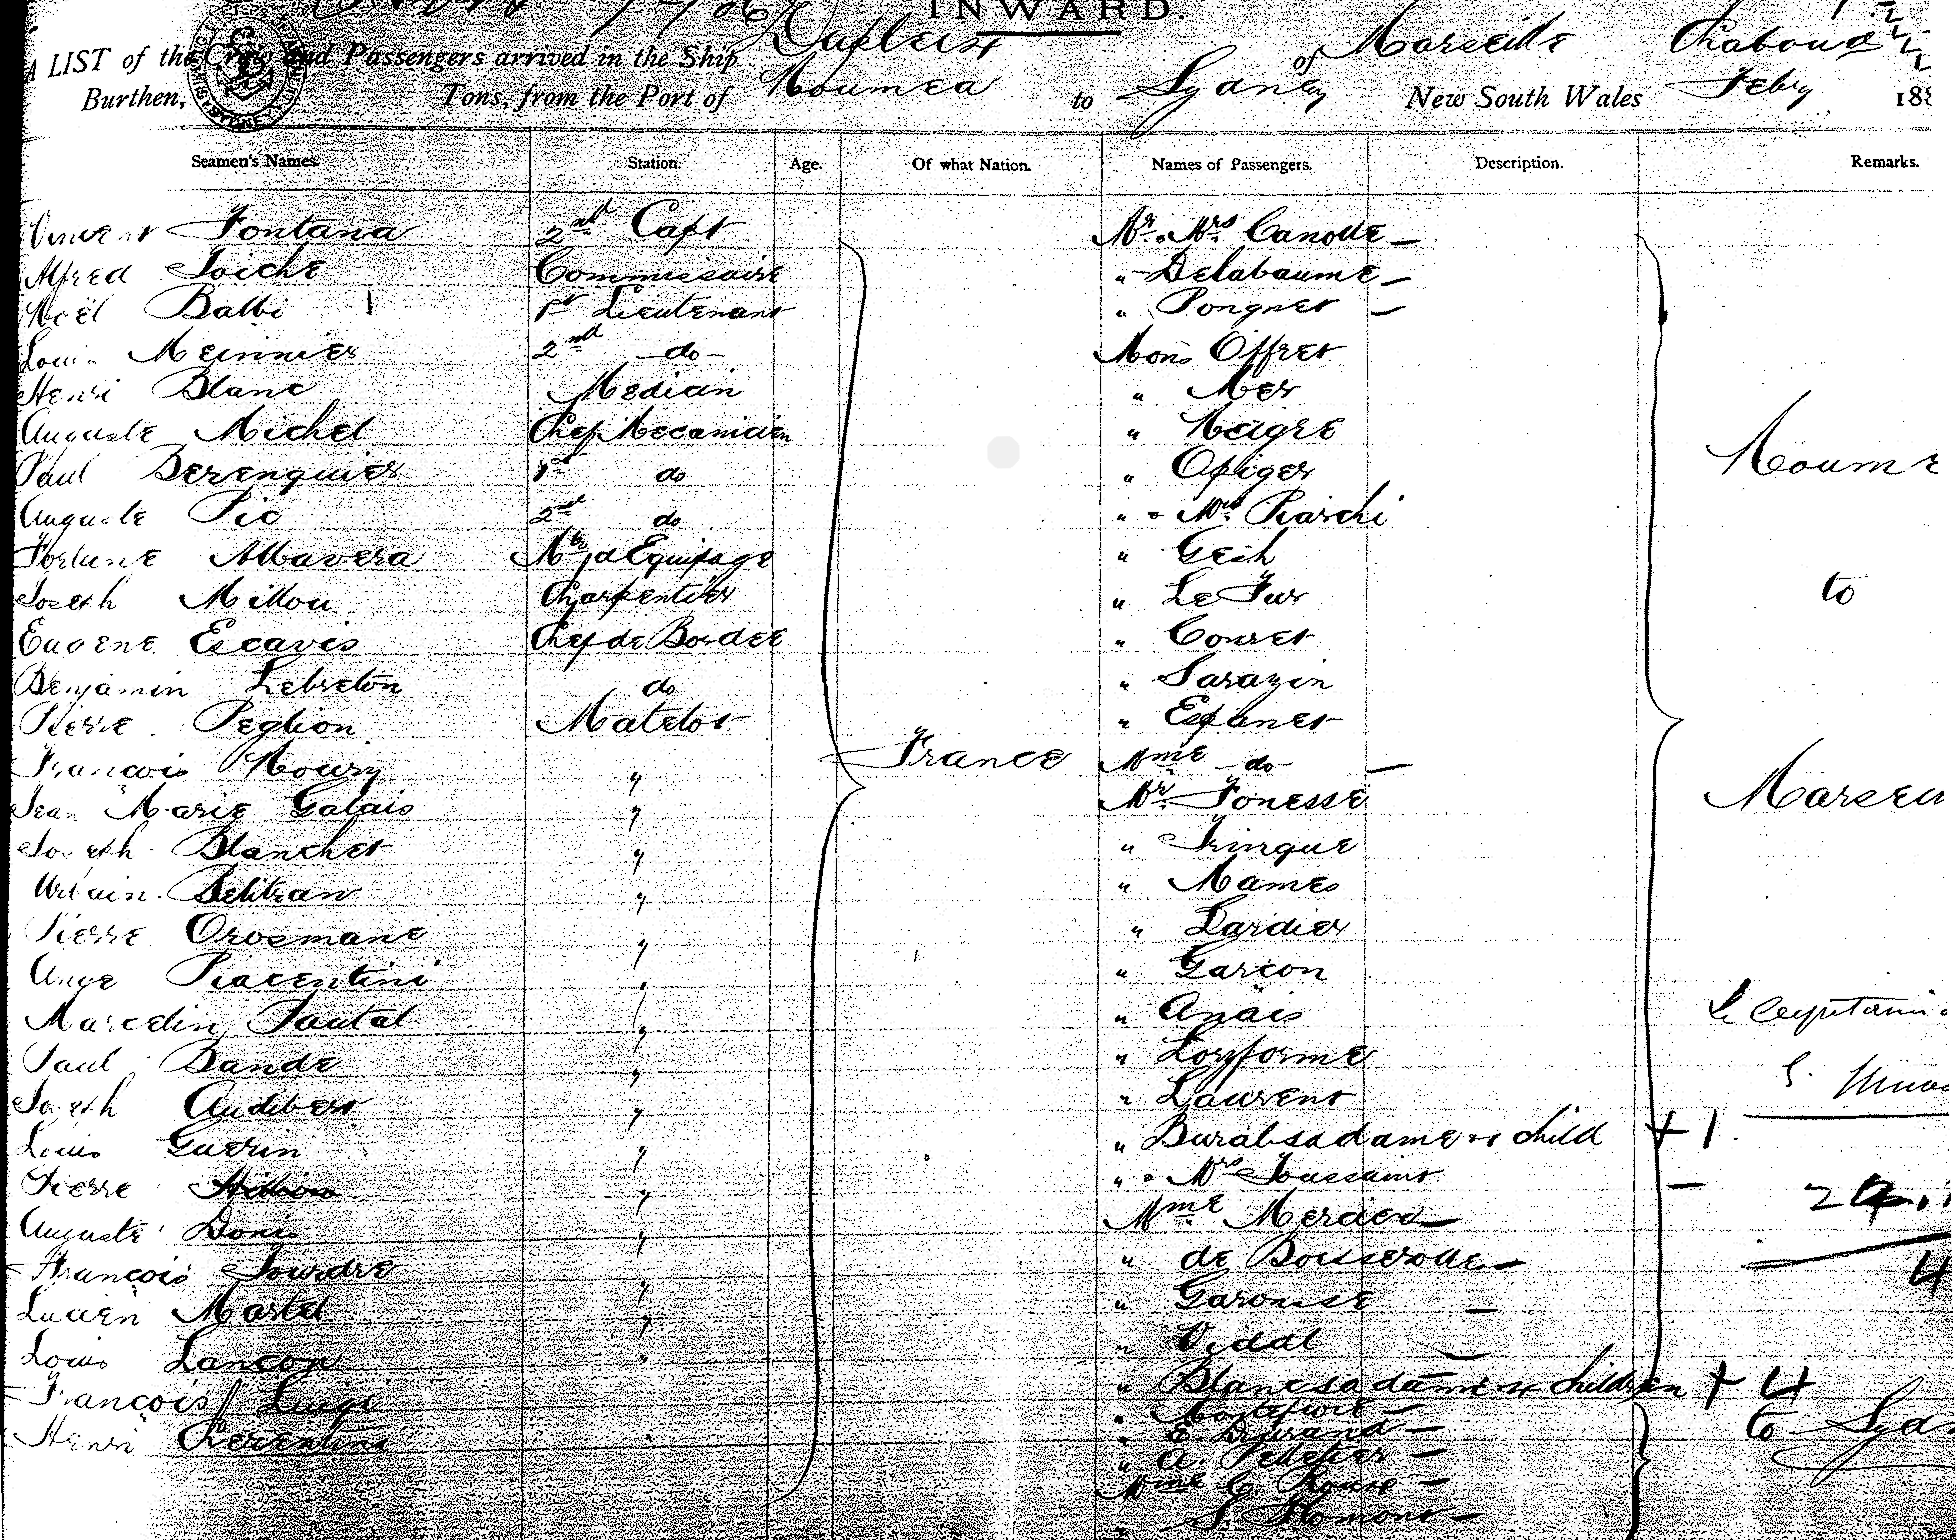 INWARD.
A LIST of the Crew and Passengers arrived in the Ship Dupleix of Marseille Chabous
Burthen, Tons, from the Port of Noumea to Sydney New South Wales Feby 188
Seamen's Names. Station. Age. Of what Nation. Names of Passengers. Description. Remarks.
Vincent Fontana 2nd Capt Mr. Mrs Canolle —
Alfred Soiché Commissaire " Delabaume —
Noël Balbi 1st Lieutenant " Pongnet —
Louis Meinnier 2nd do Mons Offret
Henri Blanc Medicin " Mer
Auguste Michel Chef Mecanicien " Maigre
Paul Berenguier 1st do " Opiger
Auguste Pic 2nd do " " Mrs Piarchi
Fortune Albavera Mtre d'Equipage " Gech
Joseph Millou Charpentier " Le Fur
Eugene Escavis Chef de Bordee " Couret
Benjamin Lebreton do " Sarazin
Pierre Peglion Matelot " Espanet
François Noury " France Mme do —
Jean Marie Galais " Mr. Fonesse
Joseph Blanchet " " Tringue
Urbain Beltran " " Mames
Pierre Orosmane " " Lardier
Ange Piacentini " " Garçon
Marcelin Pautal " " Anais
Paul Dande " " Loryforme
Joseph Audibert " " Laurent
Louis Guerin " " Burabsadame et child + 1
Pierre " " " Mrs Toussaint —
Auguste Donis " Mme Mercier —
François Sourdre " " de Boisserolle —
Lucien Martel " " Garonise —
Louis Lançon " " Vidal —
François Luigi " Blancsadame et children + 4
Henri Cerentini " " Montefiore —
" E. Bertrand —
" A. Pelletier —
Mme C. Roux —
" S. Homont —
Noume
to
Marseil
Le Capitaine
to Syd